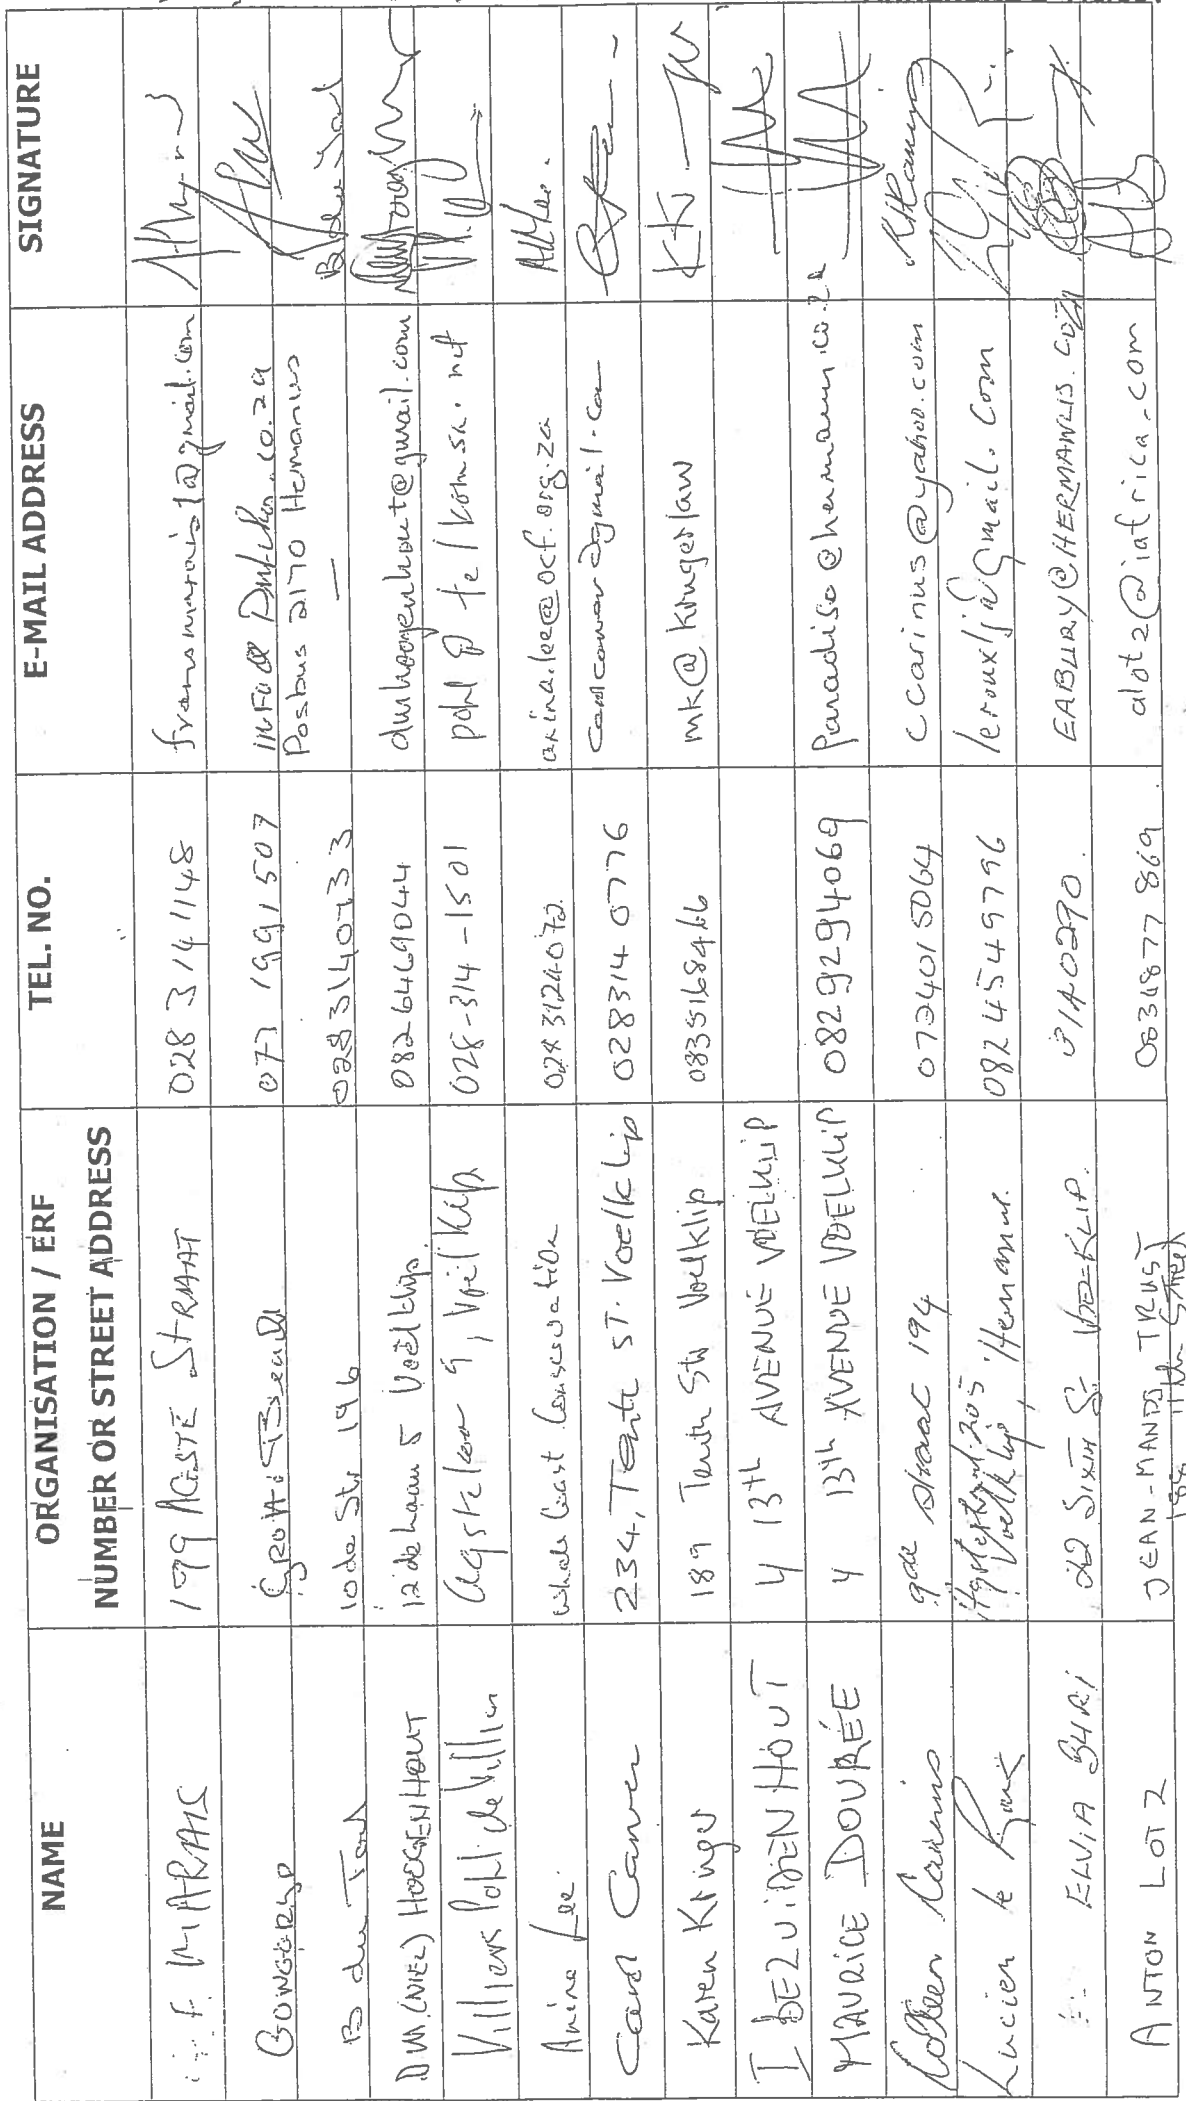 NAME
ORGANISATION / ERF NUMBER OR STREET ADDRESS
TEL. NO.
E-MAIL ADDRESS
SIGNATURE
F. MARAIS 199 AGSTE STRAAT 028 314 1148 fransmarais1@gmail.com
077 1991507
Posbus 2170 Hermanus
B du Toit 10de Str 196 0283140733 —
D.W.A. (NIEL) HOOGENHOUT 12de Laan 5 Voëlklip. 0826469044 dwhoogenhout@gmail.com
Villiers Pohl de Villiers Agste laan 9, Voëlklip 028-314-1501 pohl @ telkomsa.net
Anina Lee Whale Coast Conservation 028 3124072 anina.lee@ocf.org.za
Carol Carver 234, Tenth ST. Voelklip 028314 0776
Karen Kruger 189 Tenth Str Voelklip 0835168466 mk@krugerlaw
I BEZUIDENHOUT 4 13th AVENUE VOELKLIP
MAURICE DOURÉE 4 13th AVENUE VOELKLIP 0829294069 paradise@hermanus.co.za
Colleen Carinus 9de straat 194 0724015064 ccarinus@yahoo.com
Lucien le Roux 205 Voelklip, Hermanus. 082 4549796 lerouxlj@gmail.com
ELVIA BURI SIXTH St VOELKLIP. 3140290. EABURY@HERMANUS.COZA
ANTON LOTZ JEAN-MANDI TRUST 11th Street alotz@iafrica.com